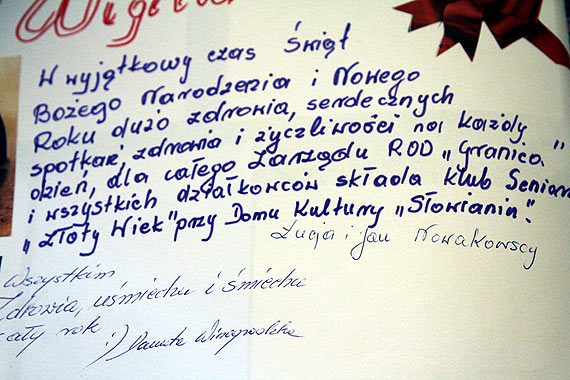 Wigilia
W wyjątkowy czas Świąt
Bożego Narodzenia i Nowego
Roku dużo zdrowia, serdecznych
spotkań, zdrowia i życzliwości na każdy
dzień, dla całego Zarządu ROD „Granica"
i wszystkich działkowców składa Klub Seniora
„Złoty Wiek" przy Domu Kultury „Słowianin".
Łucja i Jan Nowakowscy
Wszystkim
Zdrowia, uśmiechu i śmiechu
cały rok :) Danuta